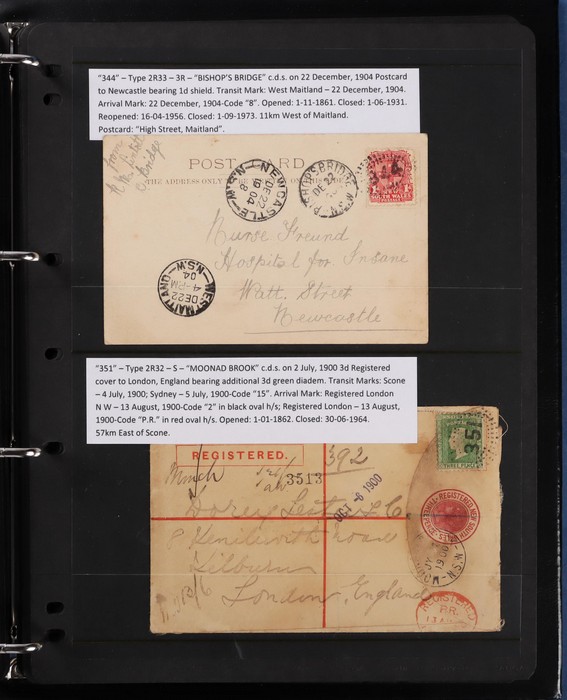 "344" – Type 2R33 – 3R – "BISHOP'S BRIDGE" c.d.s. on 22 December, 1904 Postcard
to Newcastle bearing 1d shield. Transit Mark: West Maitland – 22 December, 1904.
Arrival Mark: 22 December, 1904-Code "8". Opened: 1-11-1861. Closed: 1-06-1931.
Reopened: 16-04-1956. Closed: 1-09-1973. 11km West of Maitland.
Postcard: "High Street, Maitland".
from
Bridge
POST CARD
THE ADDRESS ONLY
NEWCASTLE N.S.W
DE 22
19 04
8
BISHOPSBRIDGE N.S.W
DE 22
344
SOUTH WALES
Nurse Freund
Hospital for Insane
Watt. Street
Newcastle
WEST MAITLAND N.S.W
DE 22
4- PM
04
"351" – Type 2R32 – S – "MOONAD BROOK" c.d.s. on 2 July, 1900 3d Registered
cover to London, England bearing additional 3d green diadem. Transit Marks: Scone
– 4 July, 1900; Sydney – 5 July, 1900-Code "15". Arrival Mark: Registered London
N W – 13 August, 1900-Code "2" in black oval h/s; Registered London – 13 August,
1900-Code "P.R." in red oval h/s. Opened: 1-01-1862. Closed: 30-06-1964.
57km East of Scone.
REGISTERED.
392
3513
OCT -6 1900
351
THREE PENCE
REGISTERED NEW SOUTH WALES THREEPENCE
Kenilworth road
Kilburn
London, England
JY
1900
N.S.W
REGISTERED
P.R.
13 AU